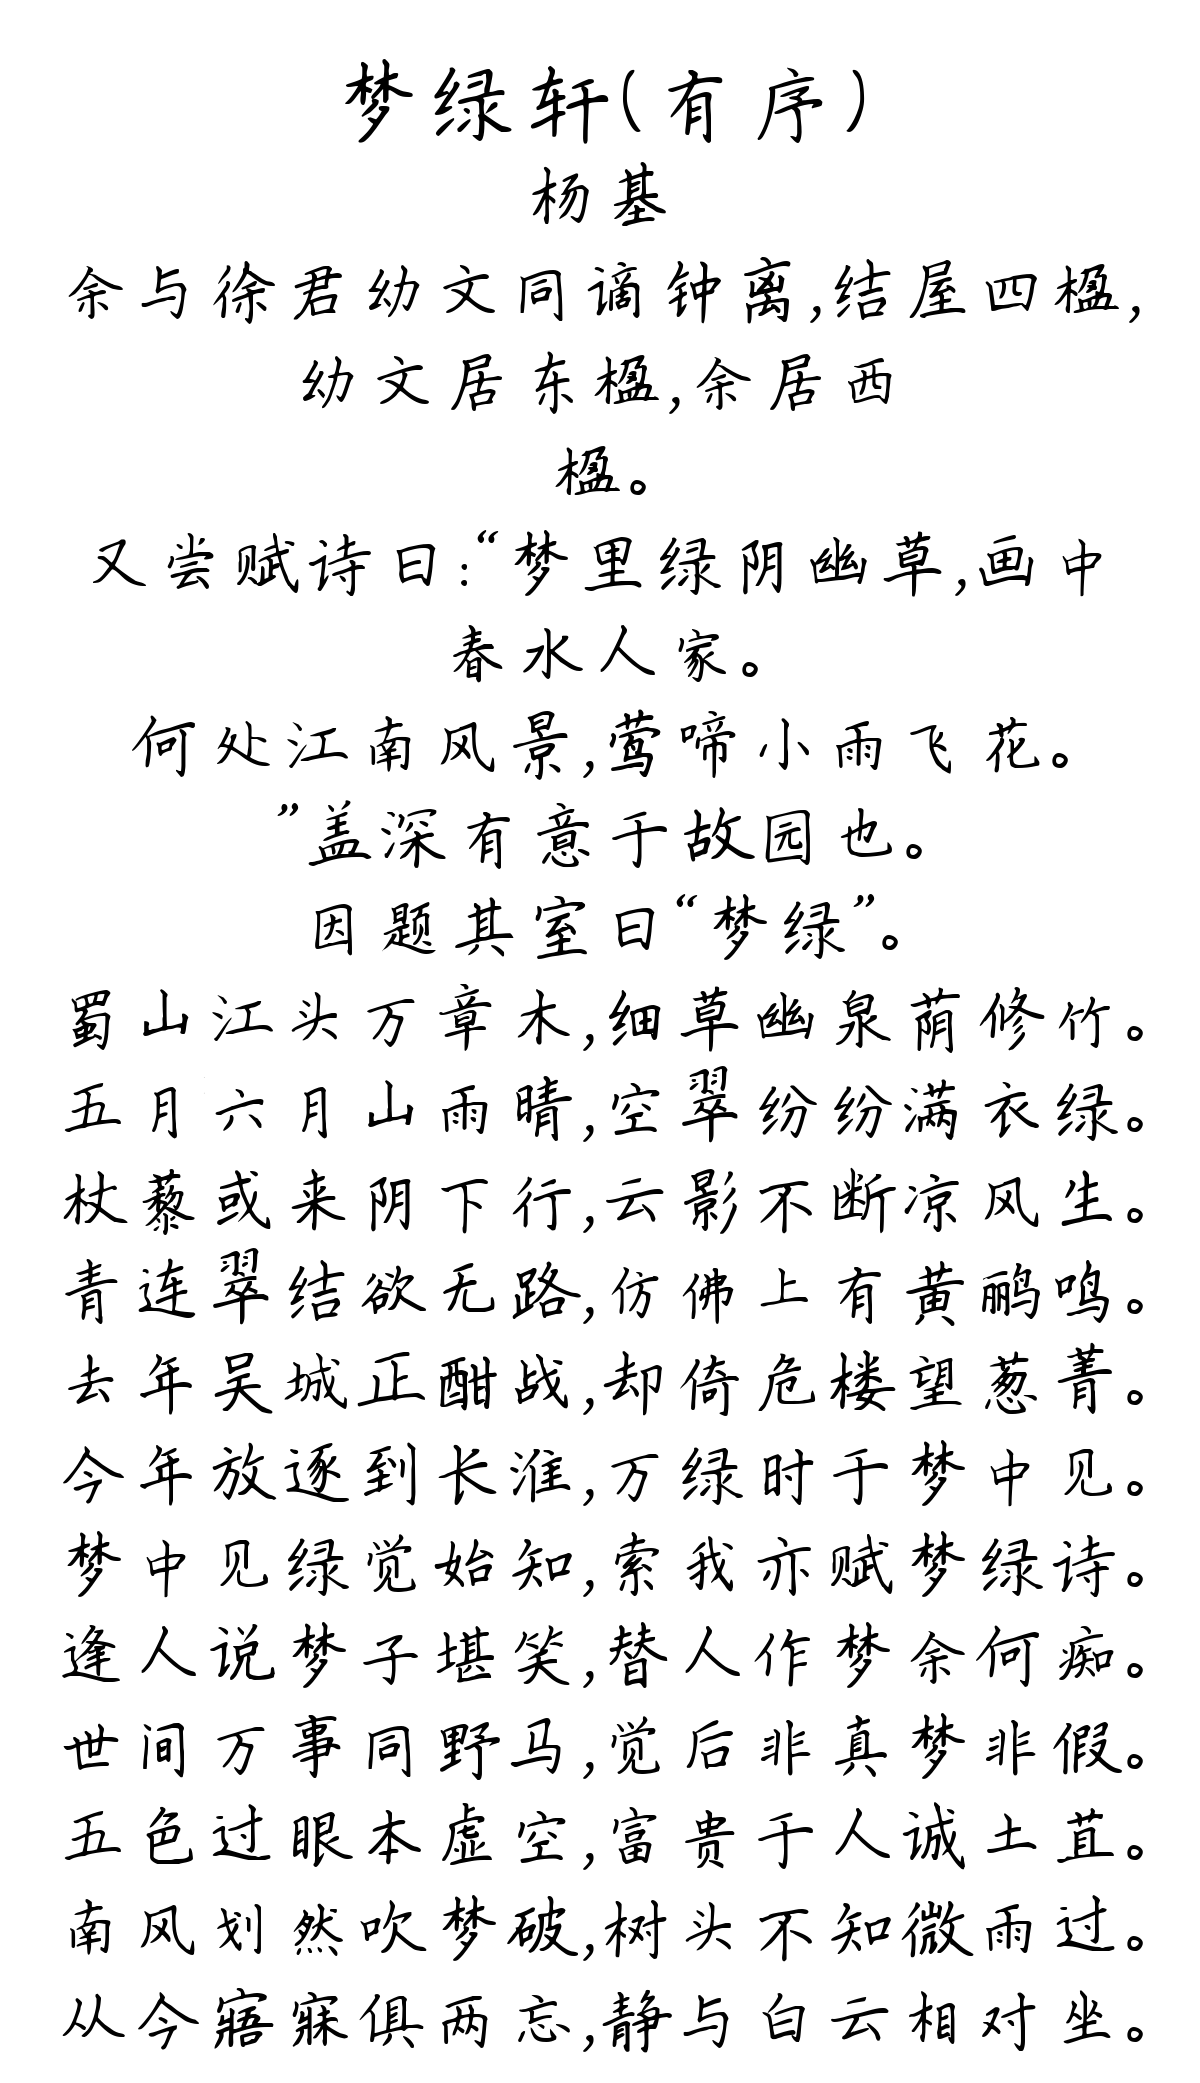 梦绿轩(有序)
杨基
余与徐君幼文同谪钟离,结屋四楹,
幼文居东楹,余居西
楹。
又尝赋诗曰:“梦里绿阴幽草,画中
春水人家。
何处江南风景,莺啼小雨飞花。
”盖深有意于故园也。
因题其室曰“梦绿”。
蜀山江头万章木,细草幽泉荫修竹。
五月六月山雨晴,空翠纷纷满衣绿。
杖藜或来阴下行,云影不断凉风生。
青连翠结欲无路,仿佛上有黄鹂鸣。
去年吴城正酣战,却倚危楼望葱菁。
今年放逐到长淮,万绿时于梦中见。
梦中见绿觉始知,索我亦赋梦绿诗。
逢人说梦子堪笑,替人作梦余何痴。
世间万事同野马,觉后非真梦非假。
五色过眼本虚空,富贵于人诚土苴。
南风划然吹梦破,树头不知微雨过。
从今寤寐俱两忘,静与白云相对坐。